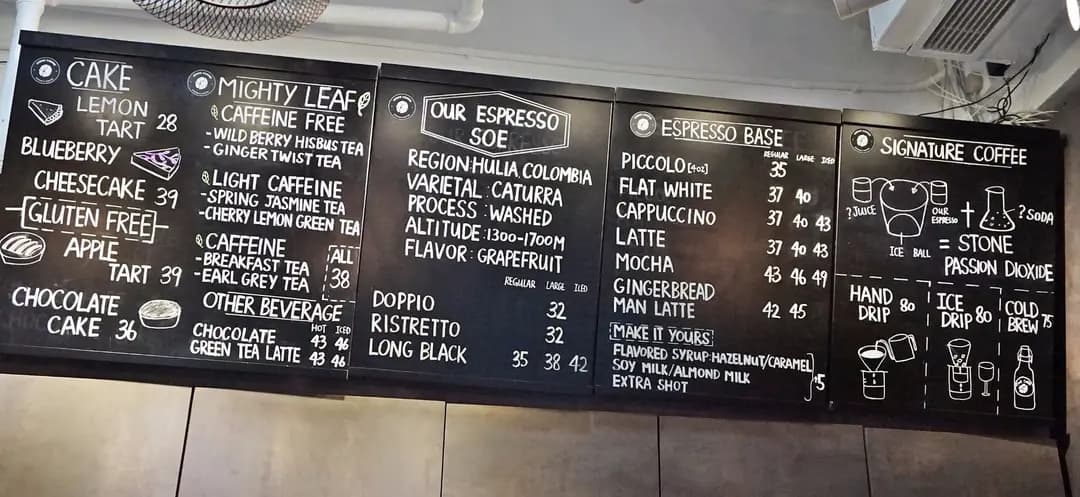 CAKE
LEMON
TART 28
BLUEBERRY
CHEESECAKE 39
GLUTEN FREE
APPLE
TART 39
CHOCOLATE
CAKE 36
MIGHTY LEAF
CAFFEINE FREE
-WILD BERRY HISBUS TEA
-GINGER TWIST TEA
LIGHT CAFFEINE
-SPRING JASMINE TEA
-CHERRY LEMON GREEN TEA
CAFFEINE
-BREAKFAST TEA
-EARL GREY TEA
ALL
38
OTHER BEVERAGE
HOT ICED
CHOCOLATE 43 46
GREEN TEA LATTE 43 46
OUR ESPRESSO
SOE
REGION:HULIA, COLOMBIA
VARIETAL:CATURRA
PROCESS:WASHED
ALTITUDE:1300-1700M
FLAVOR:GRAPEFRUIT
REGULAR LARGE ICED
DOPPIO 32
RISTRETTO 32
LONG BLACK 35 38 42
ESPRESSO BASE
REGULAR LARGE ICED
PICCOLO [4oz] 35
FLAT WHITE 37 40
CAPPUCCINO 37 40 43
LATTE 37 40 43
MOCHA 43 46 49
GINGERBREAD
MAN LATTE 42 45
MAKE IT YOURS
FLAVORED SYRUP:HAZELNUT/CARAMEL
SOY MILK/ALMOND MILK
EXTRA SHOT
+5
SIGNATURE COFFEE
?JUICE
OUR
ESPRESSO
ICE BALL
+
?SODA
= STONE
PASSION DIOXIDE
HAND
DRIP 80
ICE
DRIP 80
COLD
BREW 75